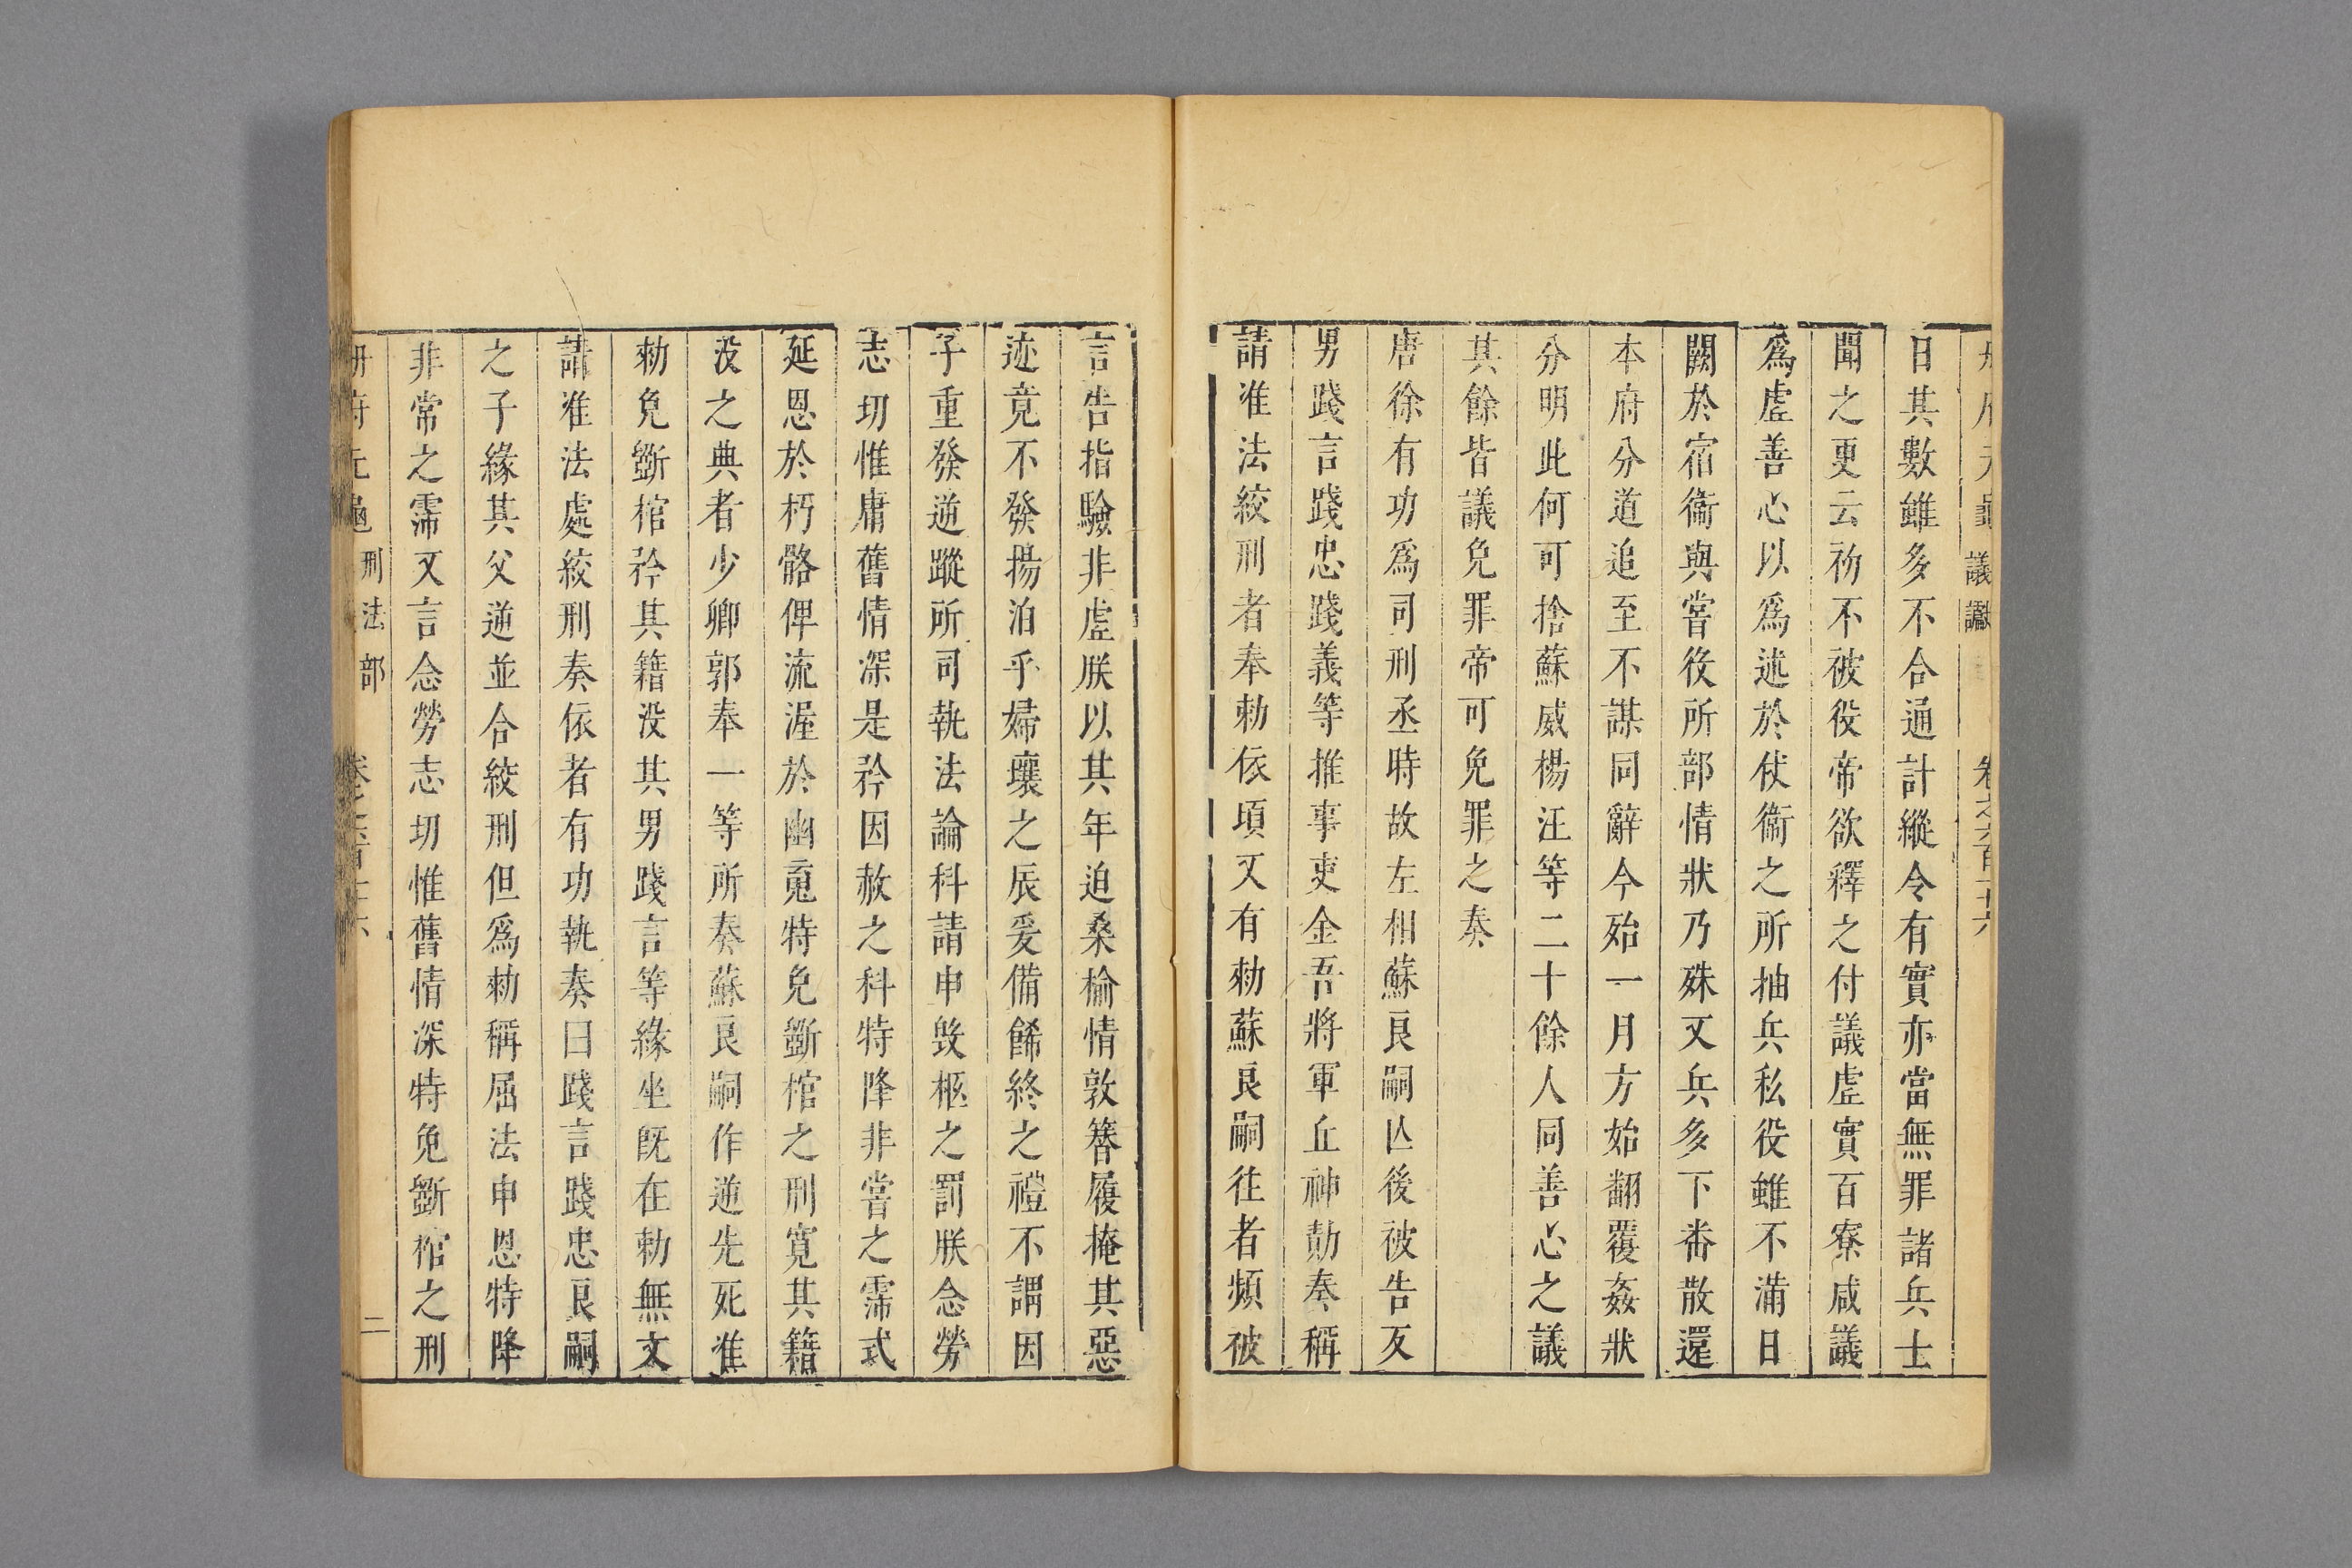 議讞
日其數雖多不合通計縱令有實亦當無罪諸兵士
聞之更云初不被役帝欲釋之付議虛實百寮咸議
爲虛善心以爲述於仗衞之所抽兵私役雖不滿日
闕於宿衞與嘗役所部情狀乃殊又兵多下番散還
本府分道追至不謀同辭今殆一月方始翻覆姦狀
分明此何可捨蘇威楊汪等二十餘人同善心之議
其餘皆議免罪帝可免罪之奏
唐徐有功爲司刑丞時故左相蘇良嗣亾後被告反
男踐言踐忠踐義等推事吏金吾將軍丘神勣奏稱
請准法絞刑者奉勑依項又有勑蘇良嗣往者頻被
言告指驗非虛朕以其年迫桑楡情敦簪履掩其惡
迹竟不發揚泊乎婦壤之辰爰備餙終之禮不謂因
子重發逆蹤所司執法論科請申毀柩之罰朕念勞
志切惟庸舊情深是矜因赦之科特降非嘗之霈式
延恩於朽骼俾流渥於幽䰟特免斲棺之刑寬其籍
没之典者少卿郭奉一等所奏蘇良嗣作逆先死准
勑免斲棺矜其籍没其男踐言等緣坐旣在勑無文
請准法處絞刑奏依者有功執奏曰踐言踐忠良嗣
之子緣其父逆並合絞刑但爲勑稱屈法申恩特降
非常之霈又言念勞志切惟舊情深特免斲棺之刑
刑法部 二